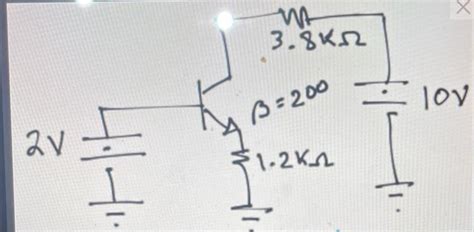 3.8KΩ
β=200
10V
2V
1.2KΩ